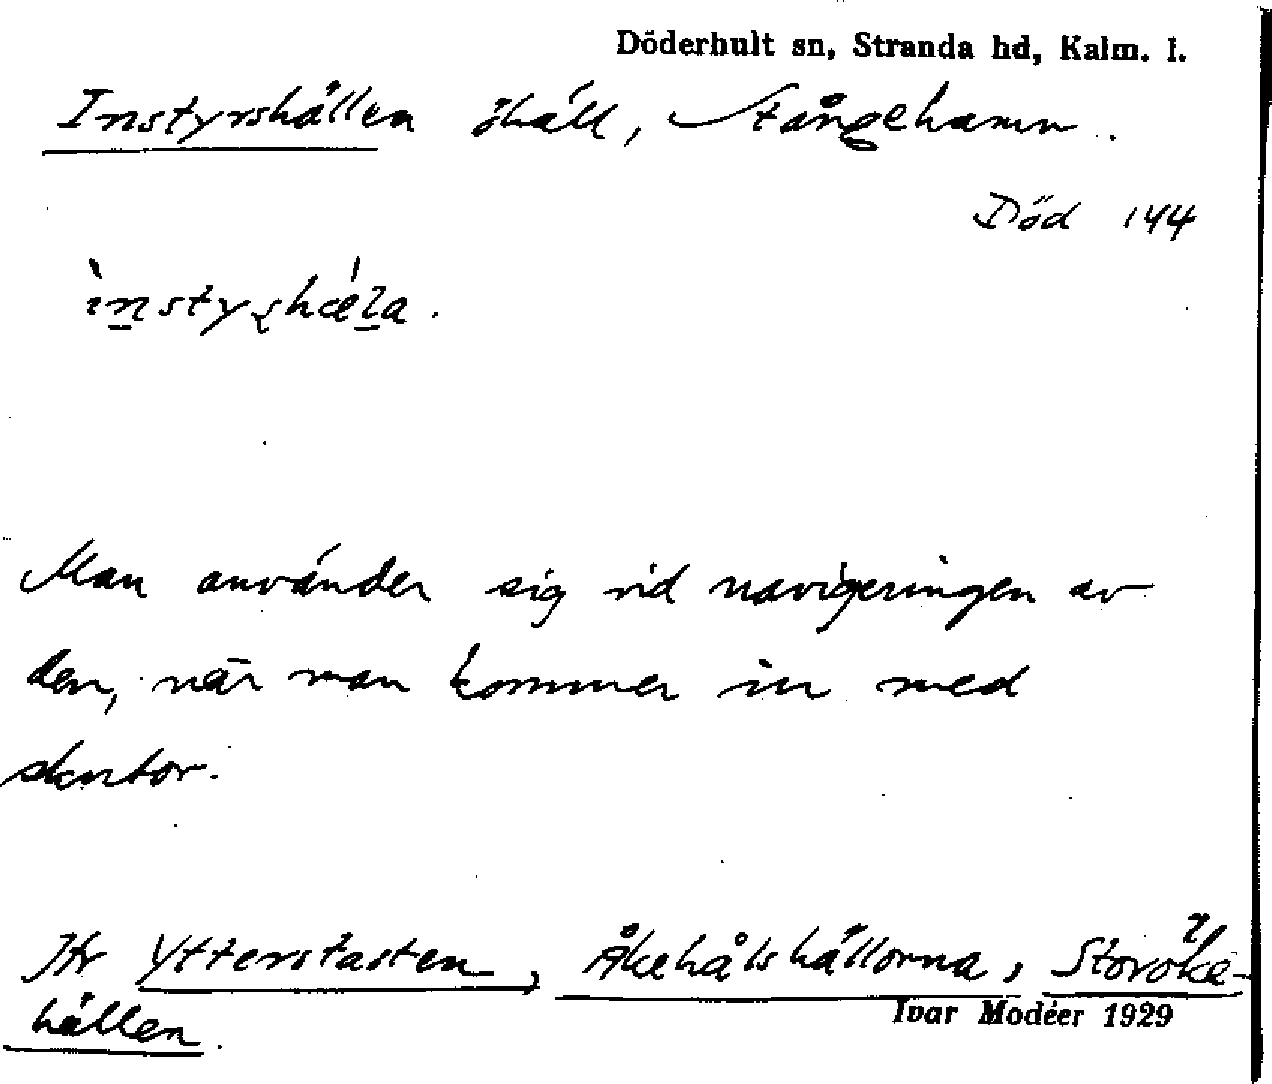 Döderhult sn, Stranda hd, Kalm. l.
Instyrshällen häll, Stångehamn.
Död 144
Man använder sig vid navigeringen av
den, när man kommer in med
skutor.
Jfr Ytterstasten, Åkehålshällorna, Storöke-
hällen.
Ivar Modéer 1929